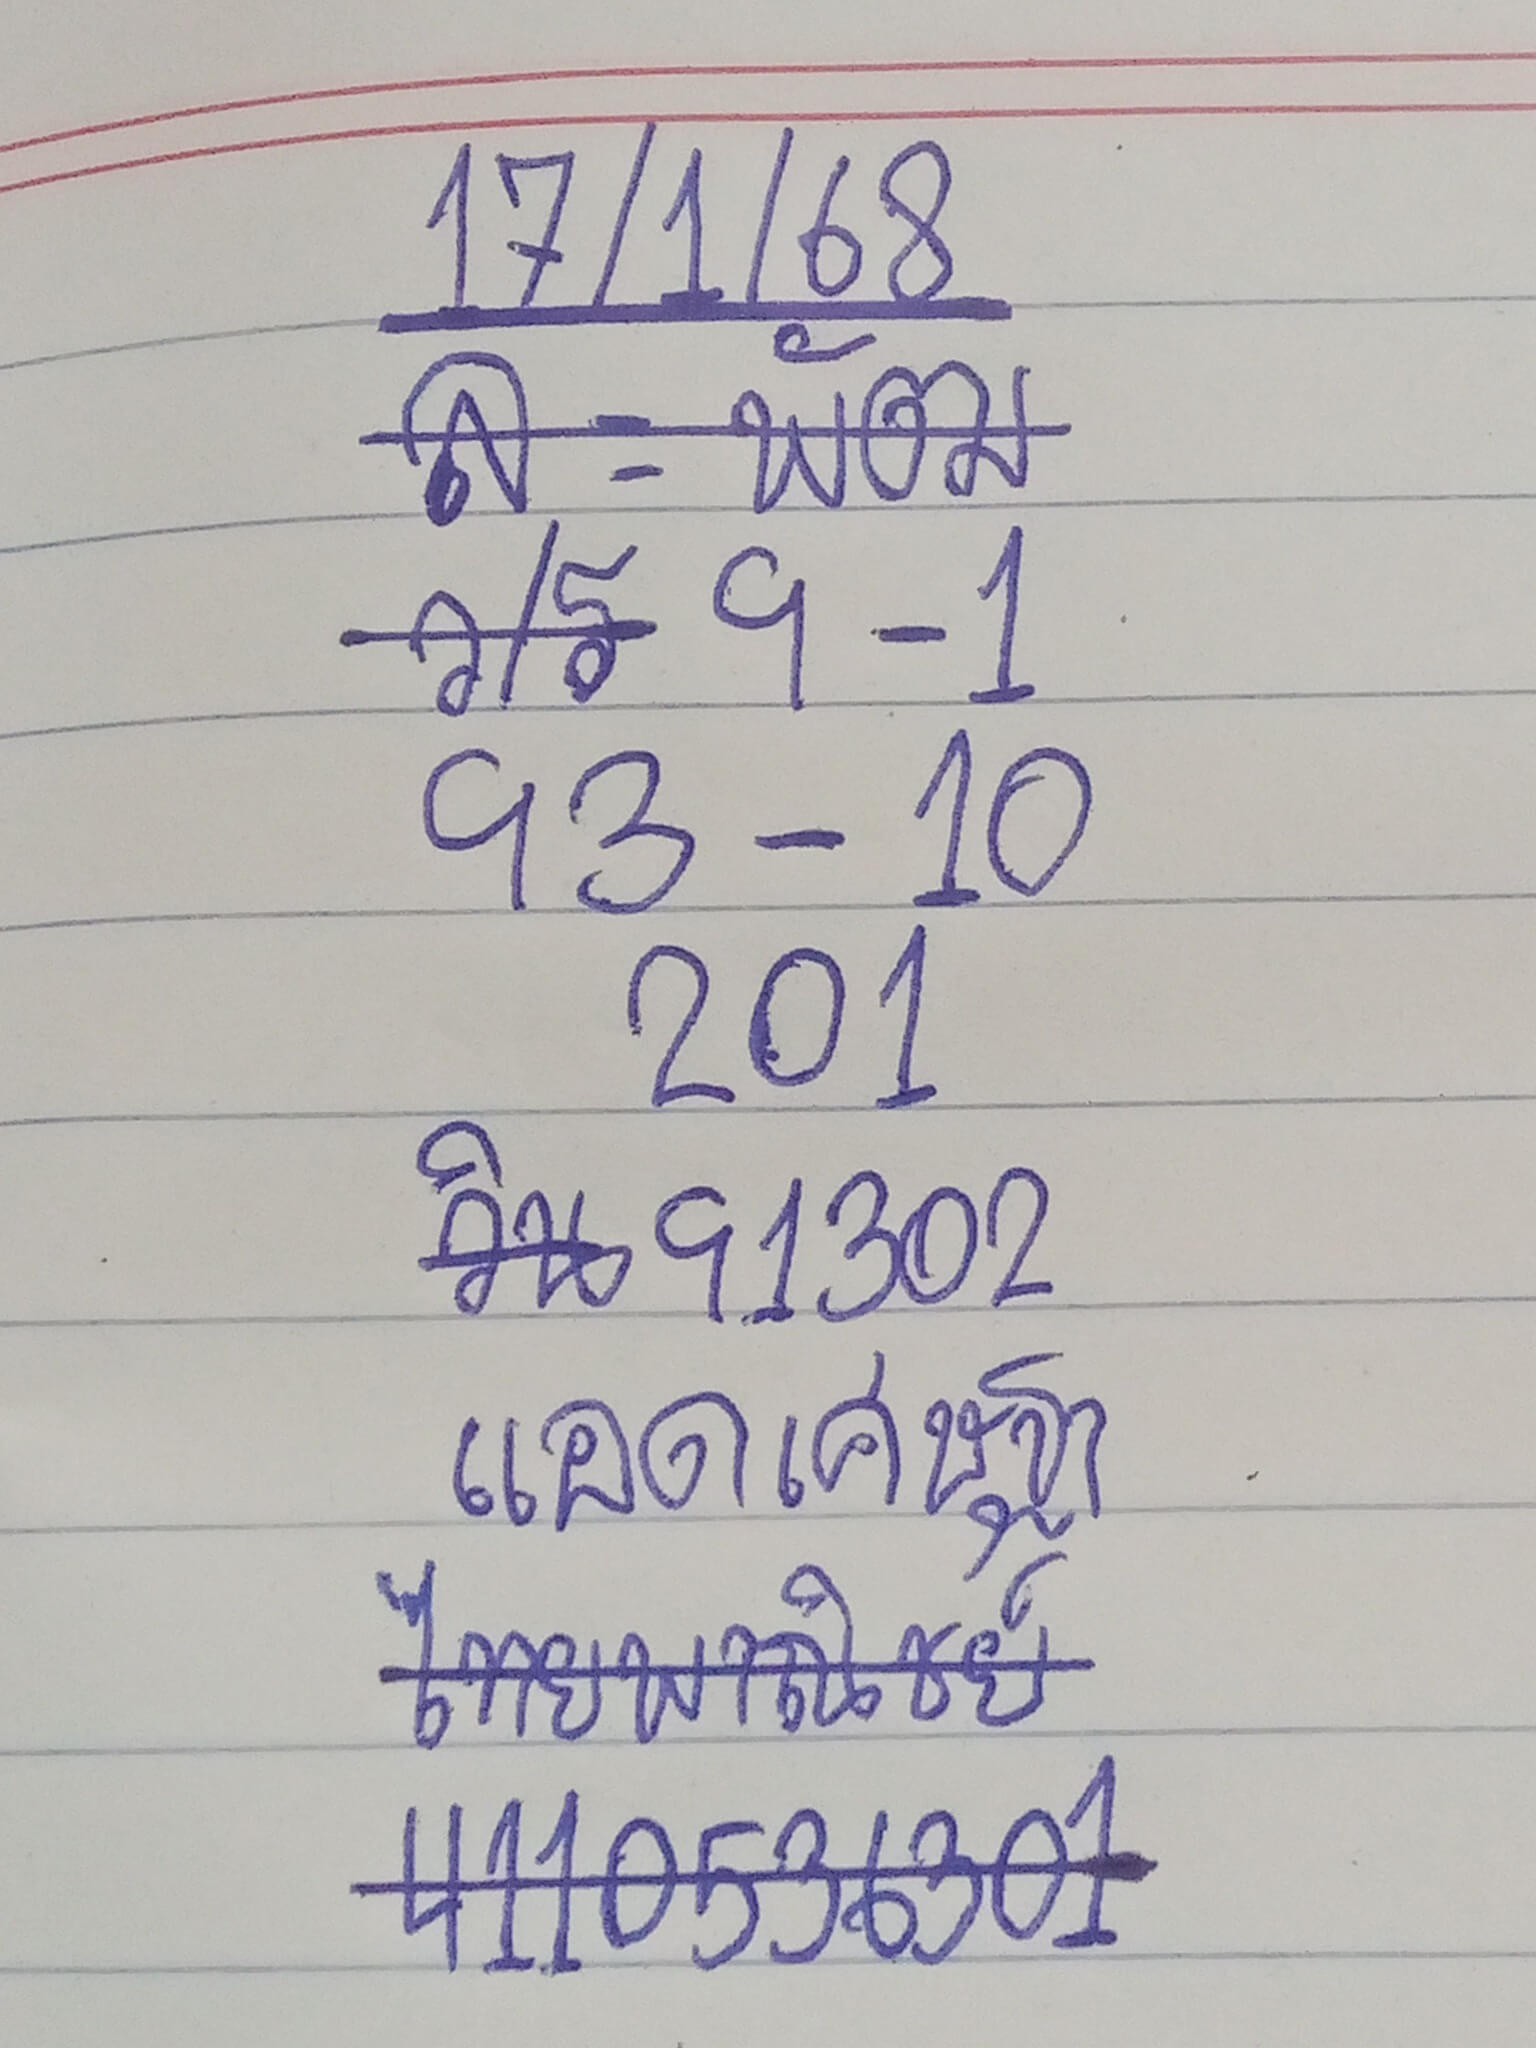 17/1/68
ล = พ้อม
ว/ธ 9 - 1
93 - 10
201
วิน 91302
แอดเศษฐา
ไทยพาณิชย์
4110536301